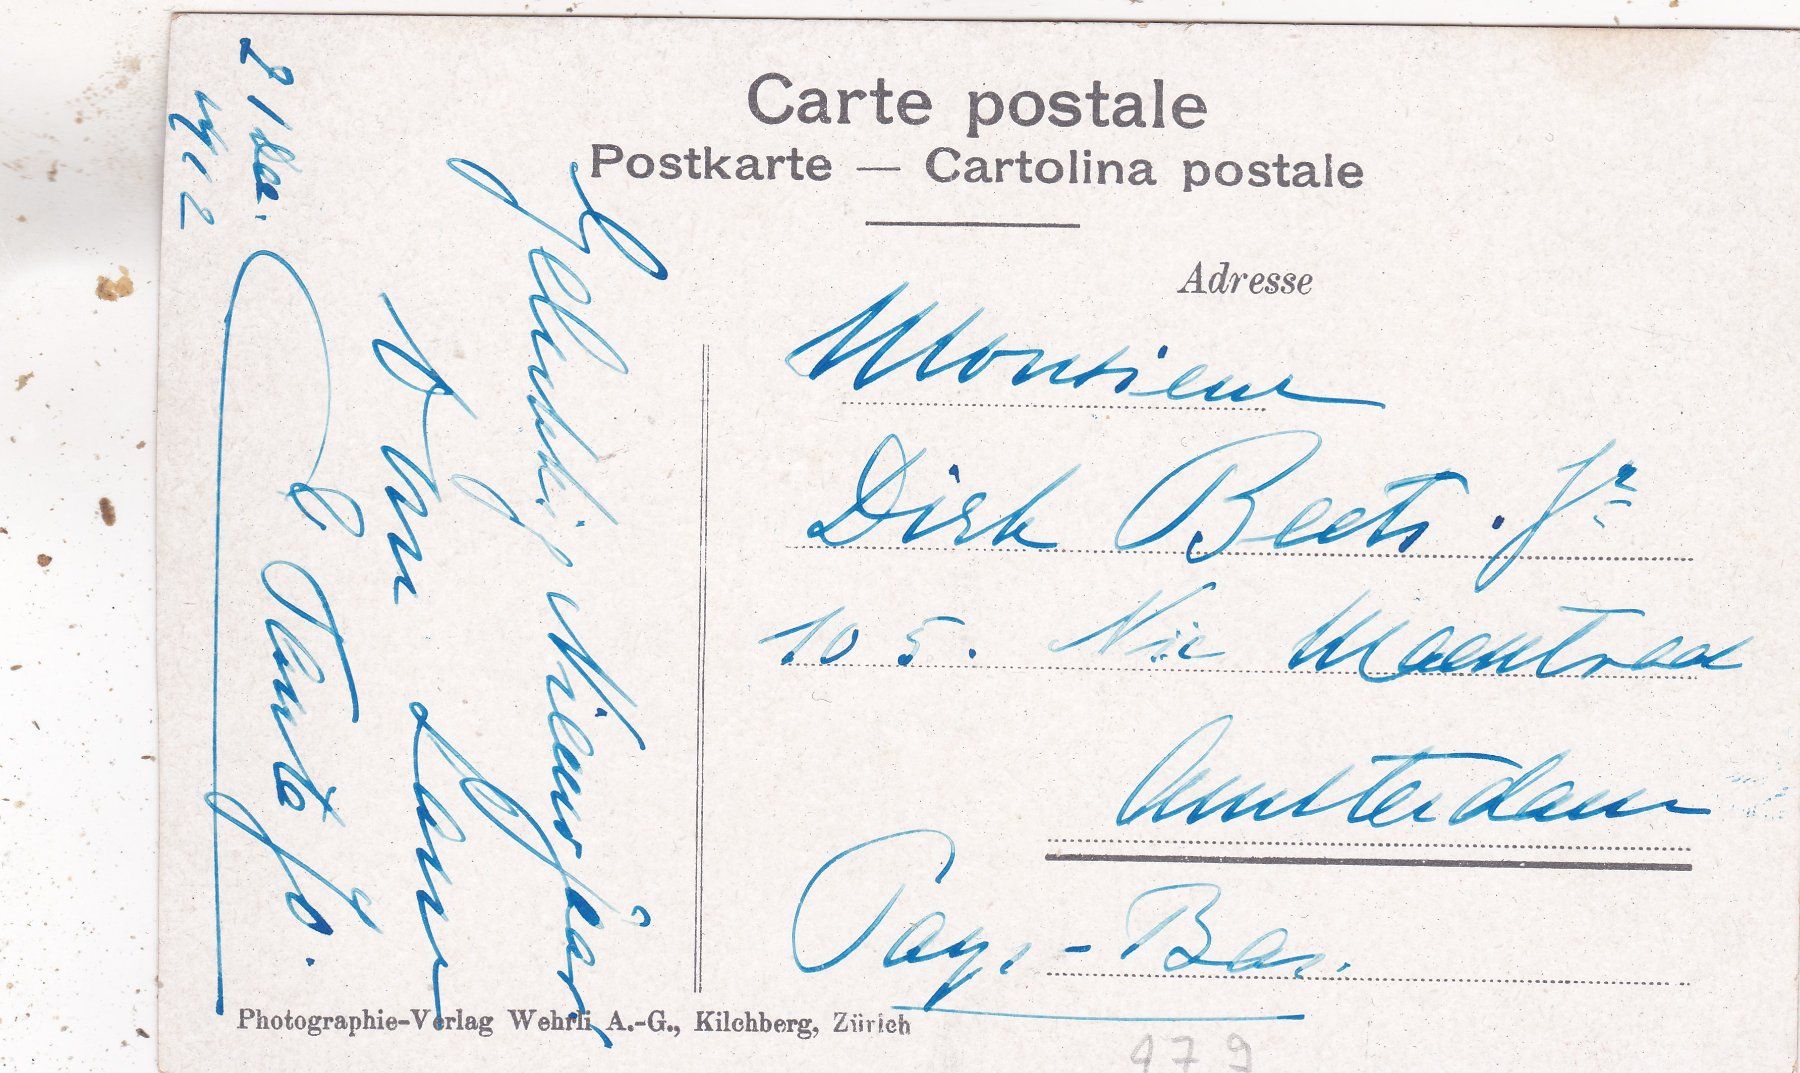 Carte postale
Postkarte — Cartolina postale
Adresse
Monsieur
Dirk Beets. Jr
105. Nic Maesstraat
Amsterdam
Pays-Bas.
21 Dec.
1912
Gelukkig Nieuwjaar
van
Tante Jo.
Photographie-Verlag Wehrli A.-G., Kilchberg, Zürich
179